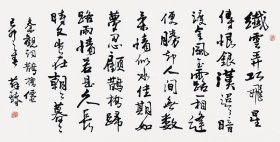 纖雲弄巧飛星
傳恨銀漢迢〻暗
渡金風玉露一相逢
便勝卻人間無數
柔情似水佳期如
夢忍顧鵲橋歸
路兩情若是久長
時又豈在朝〻暮〻
秦觀詞鵲橋仙
己卯之年